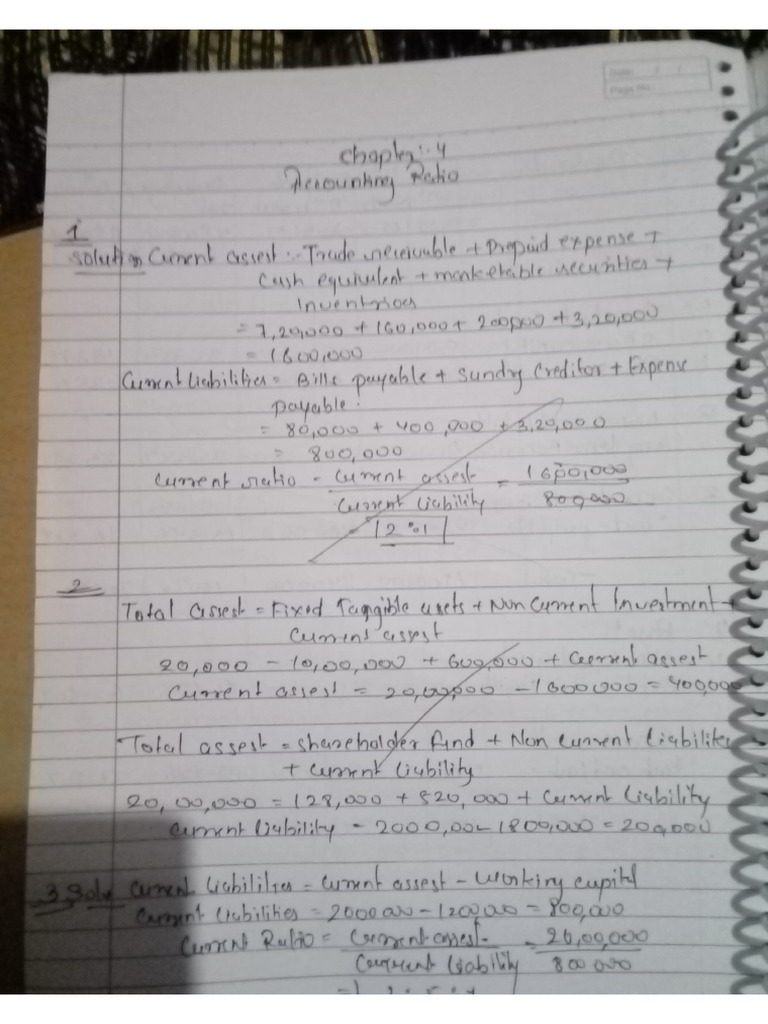 Date: / /
Page No.:
Chapter: 4
Accounting Ratio
1
Solution Current assest :- Trade receivable + Prepaid expense +
Cash equivlent + marketable securities +
Inventrioes
= 7,20,000 + 160,000 + 200,000 + 3,20,000
= 1600,000
Current Liabilities = Bills payable + Sundry Creditor + Expense
payable.
= 80,000 + 400,000 + 3,20,000
= 800,000
Current ratio = Current assest / Current Liability = 1600,000 / 800,000
= 2:1
2
Total assest = Fixed Tangible assets + Non Current Investment +
Current assest
20,000 = 10,00,000 + 600,000 + Current assest
Current assest = 20,00,000 - 1600000 = 400,000
Total assest = Shareholder fund + Non Current Liabilites
+ Current Liability
20,00,000 = 128,000 + 520,000 + Current Liability
Current Liability = 2000,00 - 1800,000 = 200,000
3. Solu Current Liabilities = Current assest - Working capital
Current Liabilities = 2000000 - 1200000 = 800,000
Current Ratio = Current assest / Current Liability = 20,00,000 / 800000